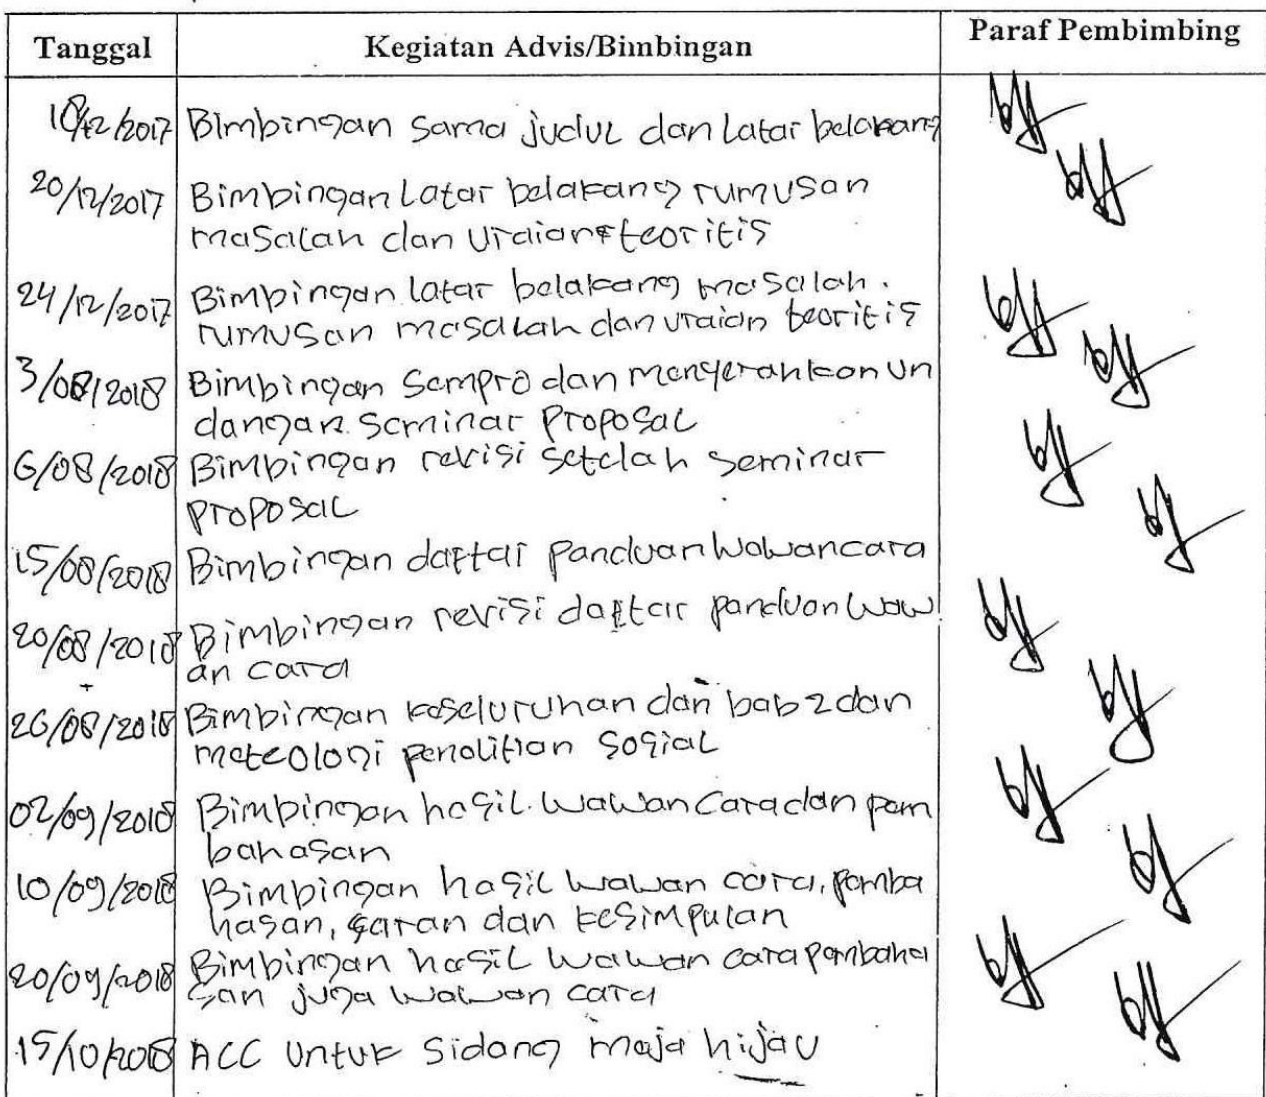 Tanggal Kegiatan Advis/Bimbingan Paraf Pembimbing
18/12/2017 Bimbingan sama judul dan Latar belakang
20/12/2017 Bimbingan Latar belakang rumusan
masalah dan Uraian teoritis
24/12/2017 Bimbingan latar belakang masalah.
rumusan masalah dan uraian teoritis
3/08/2018 Bimbingan Sempro dan menyerahkan un
dangan seminar Proposal
6/08/2018 Bimbingan revisi setelah seminar
Proposal
15/08/2018 Bimbingan daftar panduan wawancara
20/08/2018 Bimbingan revisi daftar panduan waw
an cara
26/08/2018 Bimbingan keseluruhan dari bab 2 dan
meteologi penelitian sosial
02/09/2018 Bimbingan hasil wawan cara dan pem
bahasan
10/09/2018 Bimbingan hasil wawan cara, pemba
hasan, saran dan kesimpulan
20/09/2018 Bimbingan hasil wawan cara pembaha
san juga wawan cara
15/10/2018 ACC untuk sidang meja hijau